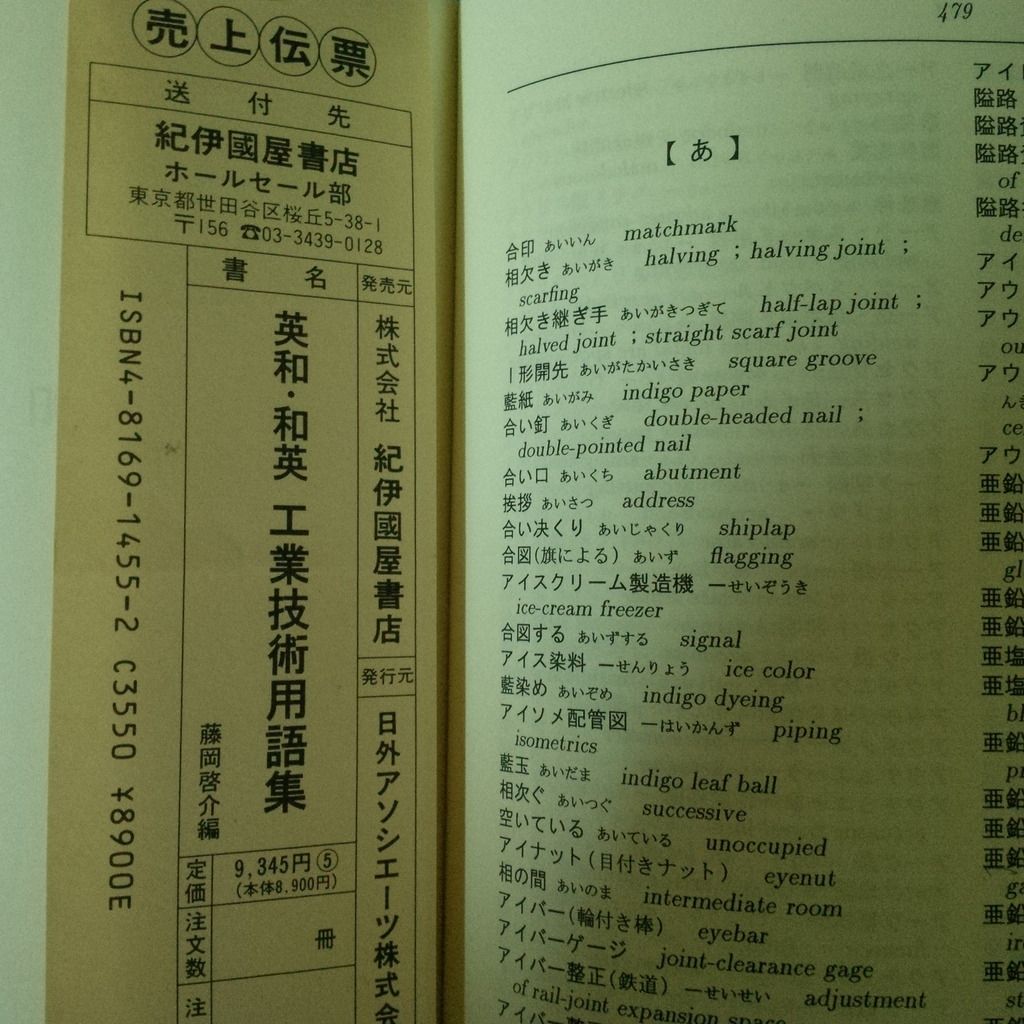 売上伝票
送付先
紀伊國屋書店
ホールセール部
東京都世田谷区桜丘5-38-1
〒156 ☎03-3439-0128
書名
英和・和英 工業技術用語集
藤岡啓介編
発売元
株式会社 紀伊國屋書店
発行元
日外アソシエーツ株式会
定価
9,345円⑤
(本体8,900円)
注文数
冊
注
ISBN4-8169-1455-2 C3550 ¥8900E
479
【あ】
合印 あいいん matchmark
相欠き あいがき halving ; halving joint ;
scarfing
相欠き継ぎ手 あいがきつぎて half-lap joint ;
halved joint ; straight scarf joint
I形開先 あいがたかいさき square groove
藍紙 あいがみ indigo paper
合い釘 あいくぎ double-headed nail ;
double-pointed nail
合い口 あいくち abutment
挨拶 あいさつ address
合い决くり あいじゃくり shiplap
合図(旗による) あいず flagging
アイスクリーム製造機 —せいぞうき
ice-cream freezer
合図する あいずする signal
アイス染料 —せんりょう ice color
藍染め あいぞめ indigo dyeing
アイソメ配管図 —はいかんず piping
isometrics
藍玉 あいだま indigo leaf ball
相次ぐ あいつぐ successive
空いている あいている unoccupied
アイナット(目付きナット) eyenut
相の間 あいのま intermediate room
アイバー(輪付き棒) eyebar
アイバーゲージ joint-clearance gage
アイバー整正(鉄道) —せいせい adjustment
of rail-joint expansion space
アイ
隘路
隘路
隘路
of
隘路
de
アイ
アウ
アウ
ou
アウ
んき
ce
アウ
亜鉛
亜鉛
亜鉛
gl
亜鉛
亜鉛
亜塩
亜塩
bl
亜鉛
pr
亜鉛
亜鉛
亜鉛
ga
亜鉛
ir
亜鉛
st